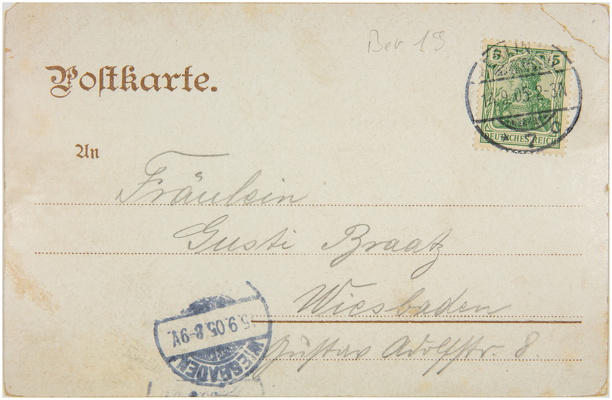 Ber 19
Postkarte.
5 5
DEUTSCHES REICH
An
Fräulein
Gusti Braatz
Wiesbaden
Gustav Adolfstr. 8.
5.9.05.8-9V.
WIESBADEN